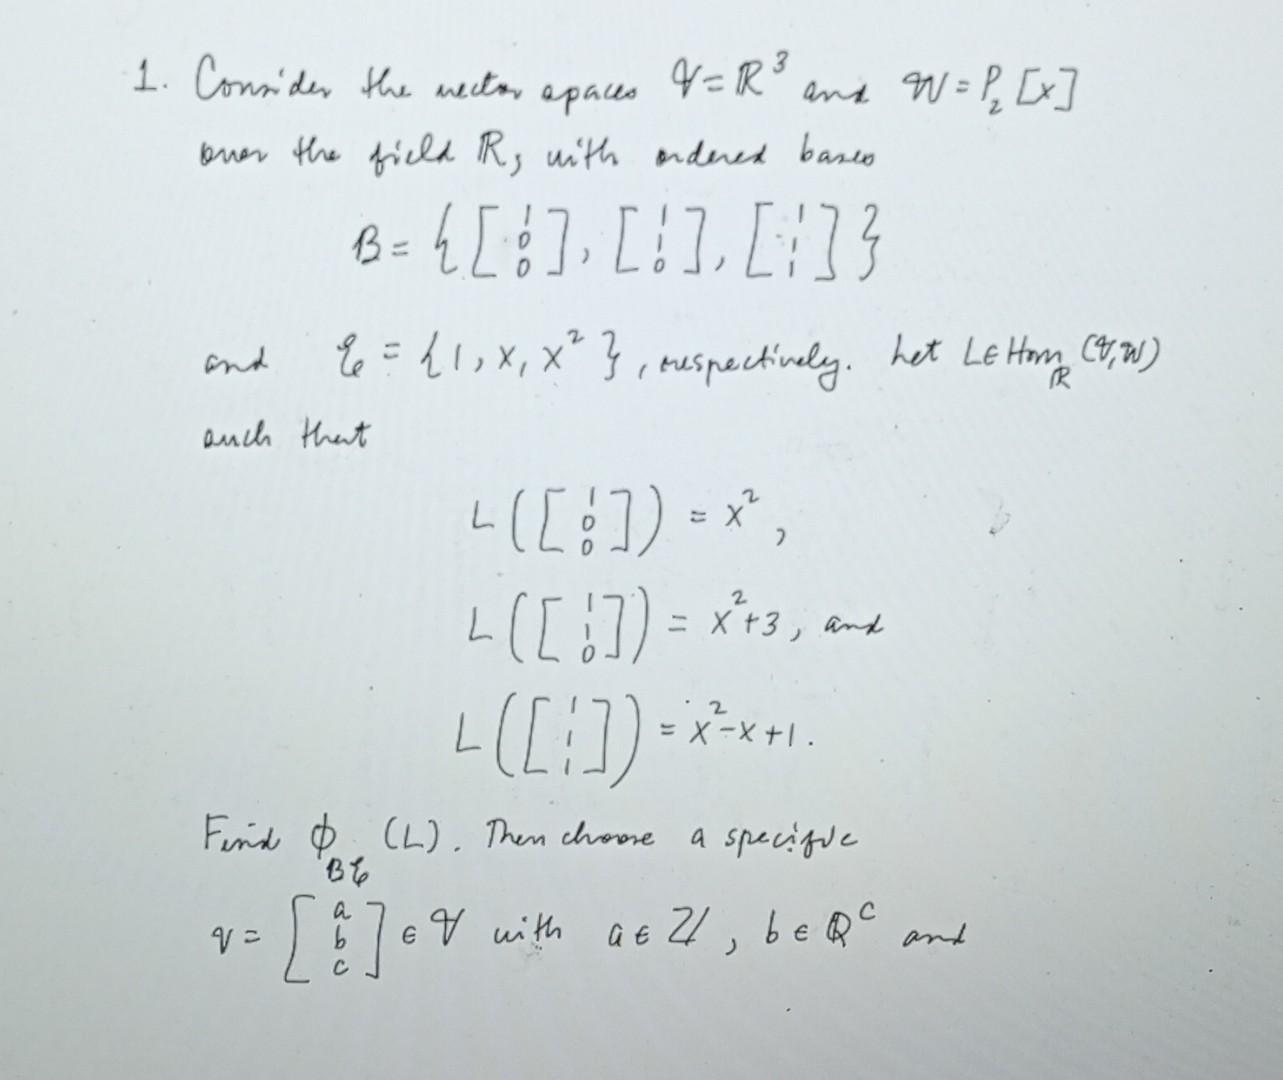 1. Consider the vector spaces 𝒱 = ℝ³ and 𝒲 = P₂[x]
over the field ℝ, with ordered bases
B = { [1 0 0], [1 1 0], [1 1 1] }
and ℰ = {1, x, x²}, respectively. Let L ∈ Hom_ℝ (𝒱, 𝒲)
such that
L([1 0 0]) = x²,
L([1 1 0]) = x² + 3, and
L([1 1 1]) = x² - x + 1.
Find ϕ_Bℰ (L). Then choose a specific
v = [a b c] ∈ 𝒱 with a ∈ ℤ, b ∈ ℚᶜ and